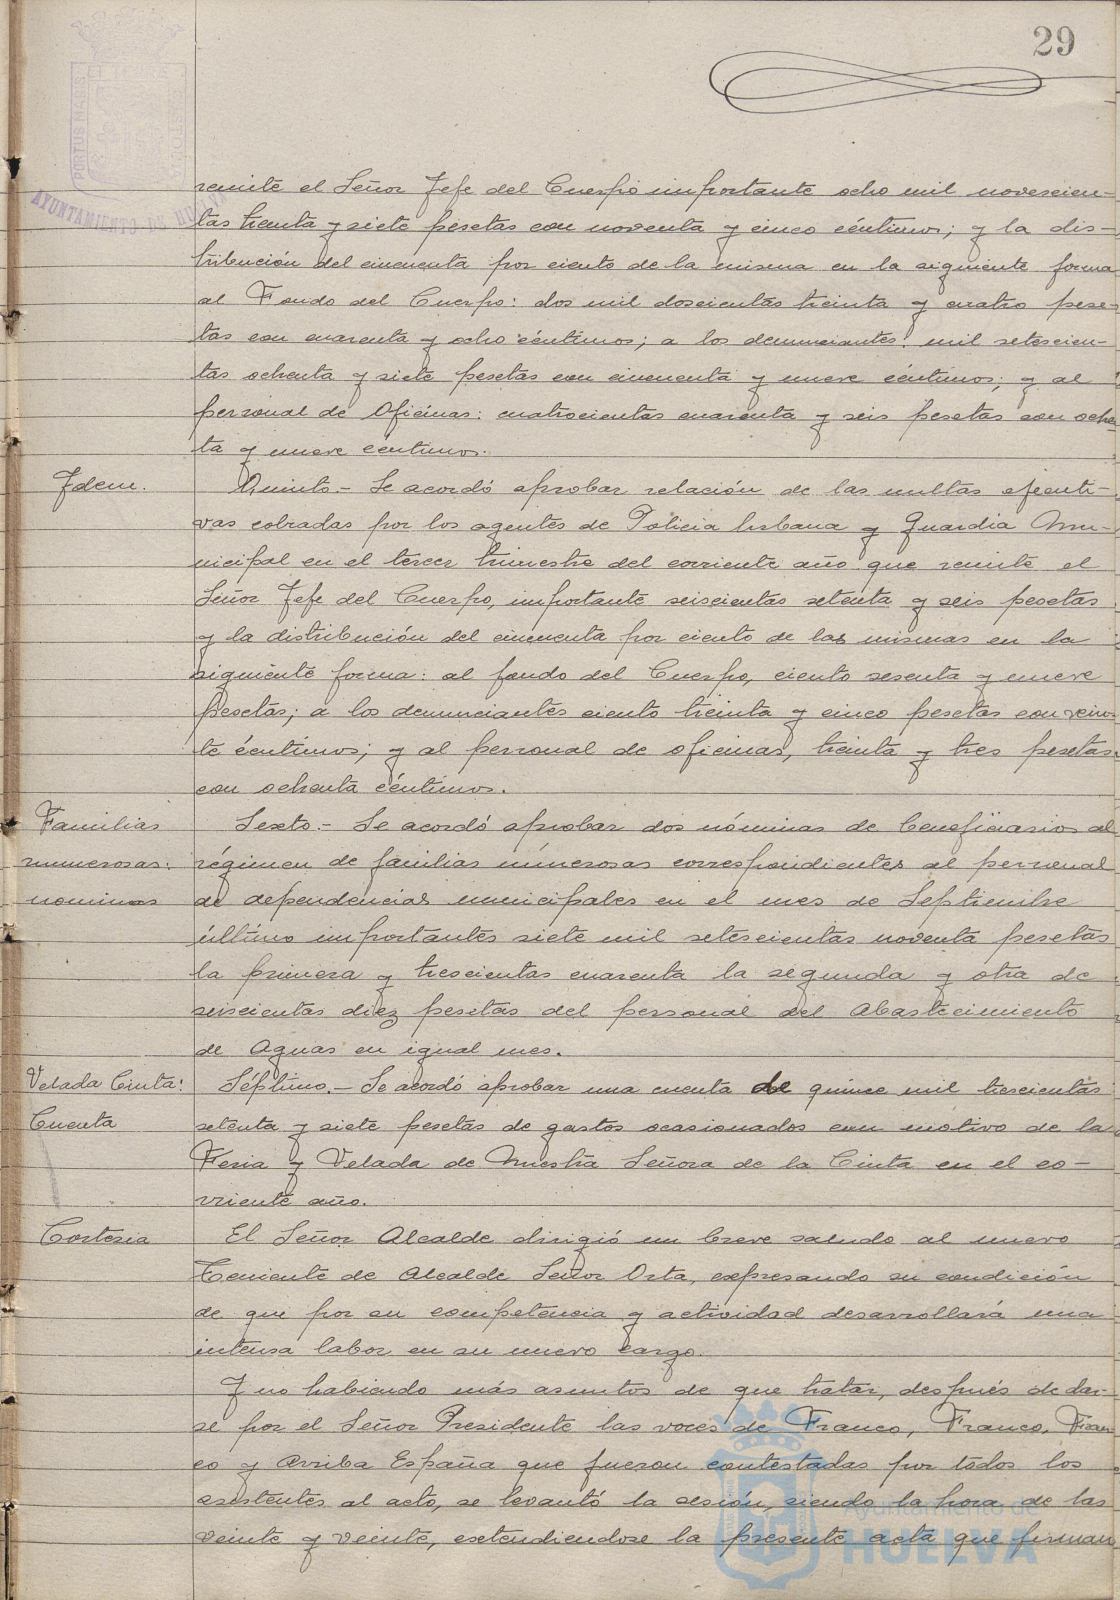 29
PORTUS MARIS
ET TERRÆ
AYUNTAMIENTO DE HUELVA
remite el Señor Jefe del Cuerpo importante ocho mil novescien-
tas treinta y siete pesetas con noventa y cinco céntimos; y la dis-
tribución del cincuenta por ciento de la misma en la siguiente forma
al Fondo del Cuerpo: dos mil doscientas treinta y cuatro pese-
tas con cuarenta y ocho céntimos; a los denunciantes: mil setescien-
tas ochenta y siete pesetas con cincuenta y nueve céntimos; y al
personal de Oficinas: cuatrocientas cuarenta y seis pesetas con ochen-
ta y nueve céntimos.
Idem.
Quinto.- Se acordó aprobar relación de las multas efecti-
vas cobradas por los agentes de Policia Urbana y Guardia Mu-
nicipal en el tercer trimestre del corriente año que remite el
Señor Jefe del Cuerpo, importante seiscientas setenta y seis pesetas
y la distribución del cincuenta por ciento de las mismas en la
siguiente forma: al fondo del Cuerpo, ciento sesenta y nueve
pesetas; a los denunciantes ciento treinta y cinco pesetas con vein-
te céntimos; y al personal de oficinas, treinta y tres pesetas
con ochenta céntimos.
Familias
numerosas:
nominas
Sexto.- Se acordó aprobar dos nóminas de beneficiarios al
régimen de familias númerosas correspondientes al personal
de dependencias municipales en el mes de Septiembre
último importantes siete mil setescientas noventa pesetas
la primera y trescientas cuarenta la segunda y otra de
seiscientas diez pesetas del personal del Abastecimiento
de Aguas en igual mes.
Velada Cinta:
Cuenta
Séptimo.- Se acordó aprobar una cuenta de quince mil trescientas
setenta y siete pesetas de gastos ocasionados con motivo de la
Feria y Velada de Nuestra Señora de la Cinta en el co-
rriente año.
Cortesia
El Señor Alcalde dirigió un breve saludo al nuevo
Teniente de Alcalde Señor Orta, expresando su condición
de que por su competencia y actividad desarrollará una
intensa labor en su nuevo cargo.
Y no habiendo más asuntos de que tratar, después de dar-
se por el Señor Presidente las voces de Franco, Franco, Fran-
co y Arriba España que fueron contestadas por todos los
asistentes al acto, se levantó la sesión, siendo la hora de las
veinte y veinte, extendiendose la presente acta que firman
Ayuntamiento de
HUELVA